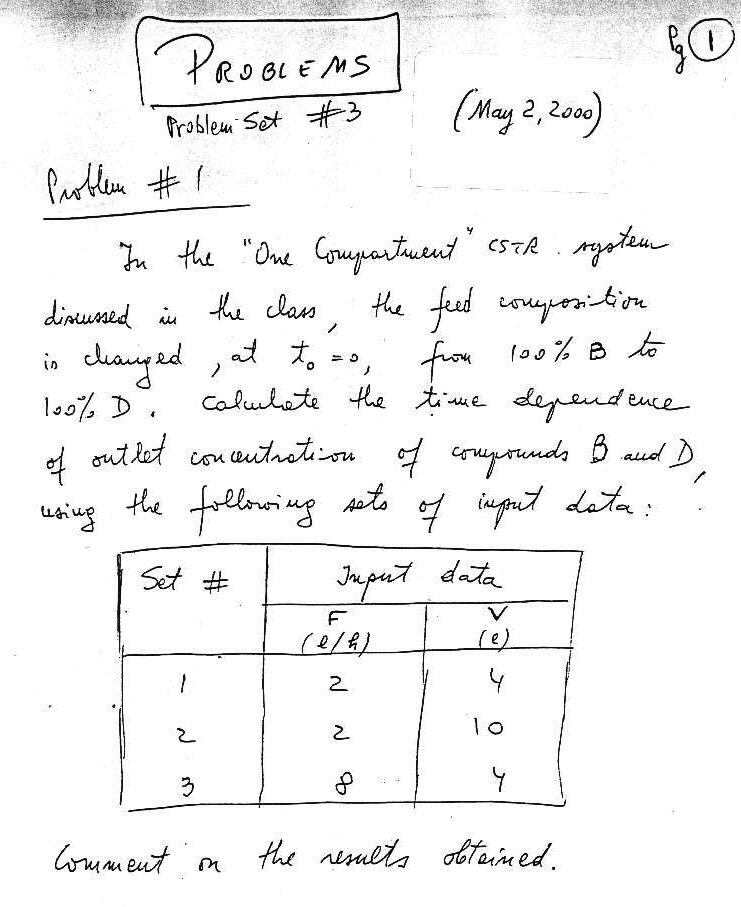 Pg 1
PROBLEMS
Problem Set #3
(May 2, 2000)
Problem #1
In the "One Compartment" CSTR system
discussed in the class, the feed composition
is changed, at t₀ = 0, from 100% B to
100% D. Calculate the time dependence
of outlet concentration of compounds B and D,
using the following sets of input data:
Set # Input data
F V
(l/h) (l)
1 2 4
2 2 10
3 8 4
Comment on the results obtained.